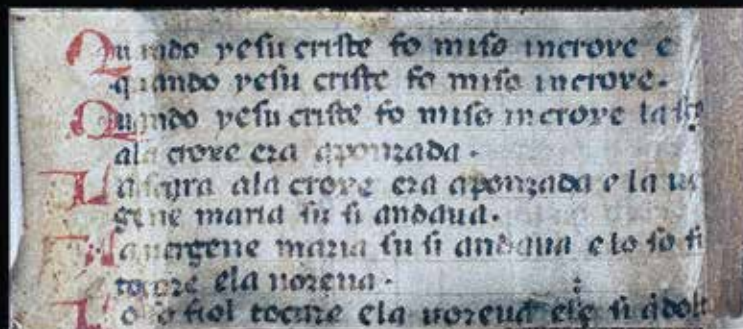 Quando yesu criste fo miso in crove e
quando yesu criste fo miso in crove.
Quando yesu criste fo miso in crove la
ala crove era aponzada.
La scara ala crove era aponzada e la
gene maria su si andaua.
La uergene maria su si andaua e lo so fi
tocare ela uoreua.
Lo so fiol tocare ela uoreua ele si